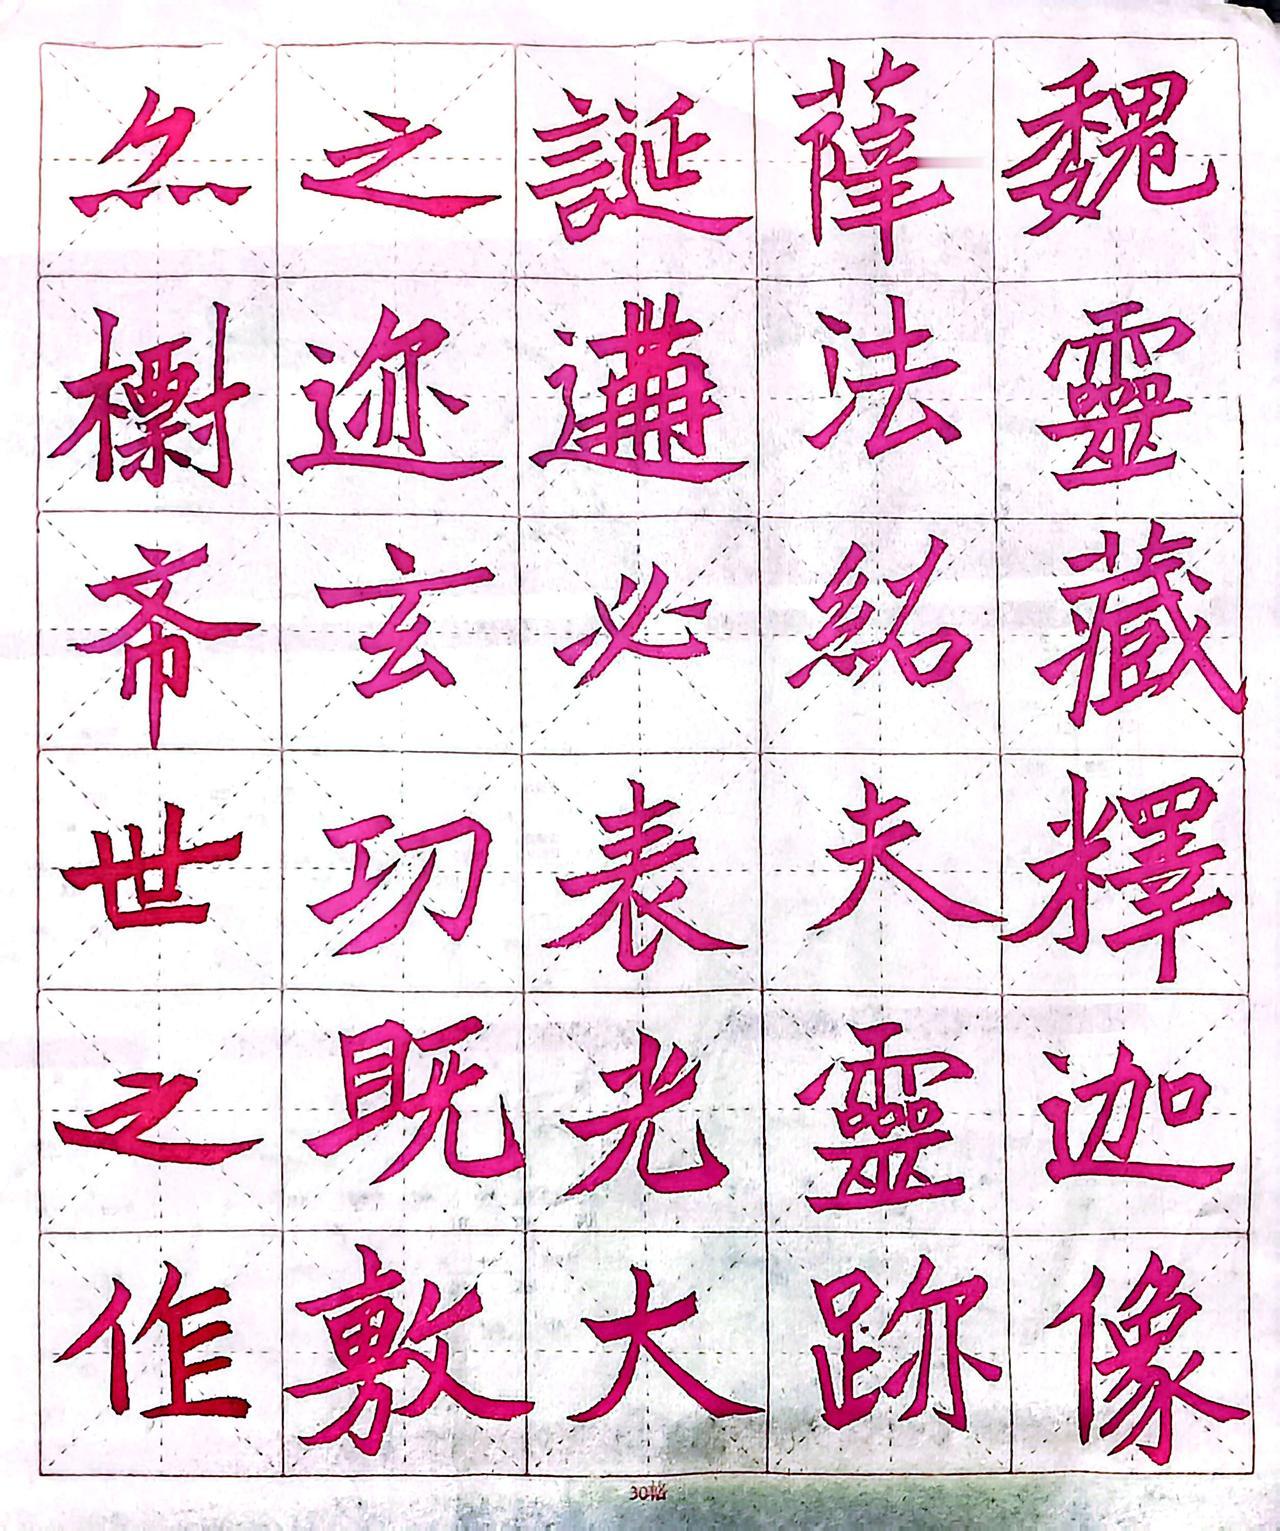 魏靈藏釋迦像
薛法紹夫靈跡
誕遘必表光大
之迹玄功既敷
亦標希世之作
30格